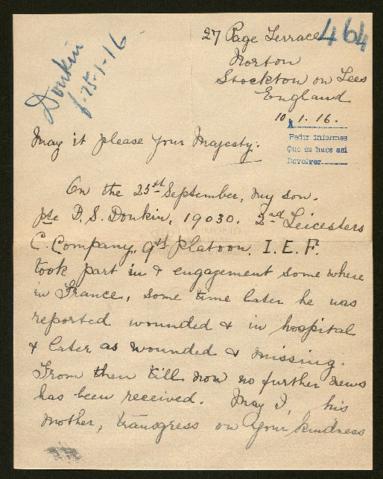 Donkin
f. 25-1-16
464
27 Page Terrace
Norton
Stockton on Tees
England
10.1.16.
Pedir informes
Que se hace así
Devolver
May it please Your Majesty.
On the 25th September, my son.
Pte D. S. Donkin, 19030. 2nd Leicesters
C. Company, 9th Platoon, I.E.F.
took part in & engagement some where
in France, some time later he was
reported wounded & in hospital
& later as wounded & missing.
From then till now no further news
has been received. May I, his
mother, transgress on Your kindness